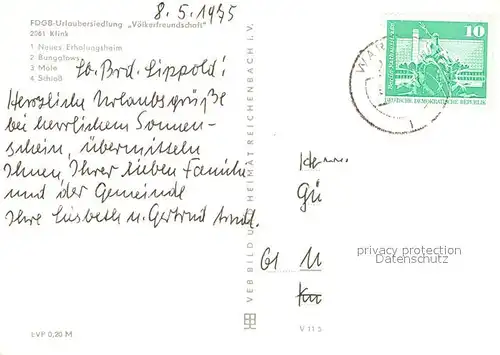 8.5.1975
FDGB-Urlaubersiedlung „Völkerfreundschaft"
2061 Klink
1 Neues Erholungsheim
2 Bungalows
3 Mole
4 Schloß
Lb. Brd. Lippold!
Herzliche Urlaubsgrüße
bei herrlichem Sonnen-
schein, übermitteln
Ihnen, Ihrer lieben Familie
und der Gemeinde
Ihre Lisbeth u. Gertrud
EVP 0,20 M
VEB BILD UND HEIMAT REICHENBACH i. V.
10
DEUTSCHE DEMOKRATISCHE REPUBLIK
WAR
Gü
61 11
V 11 5
privacy protection
Datenschutz